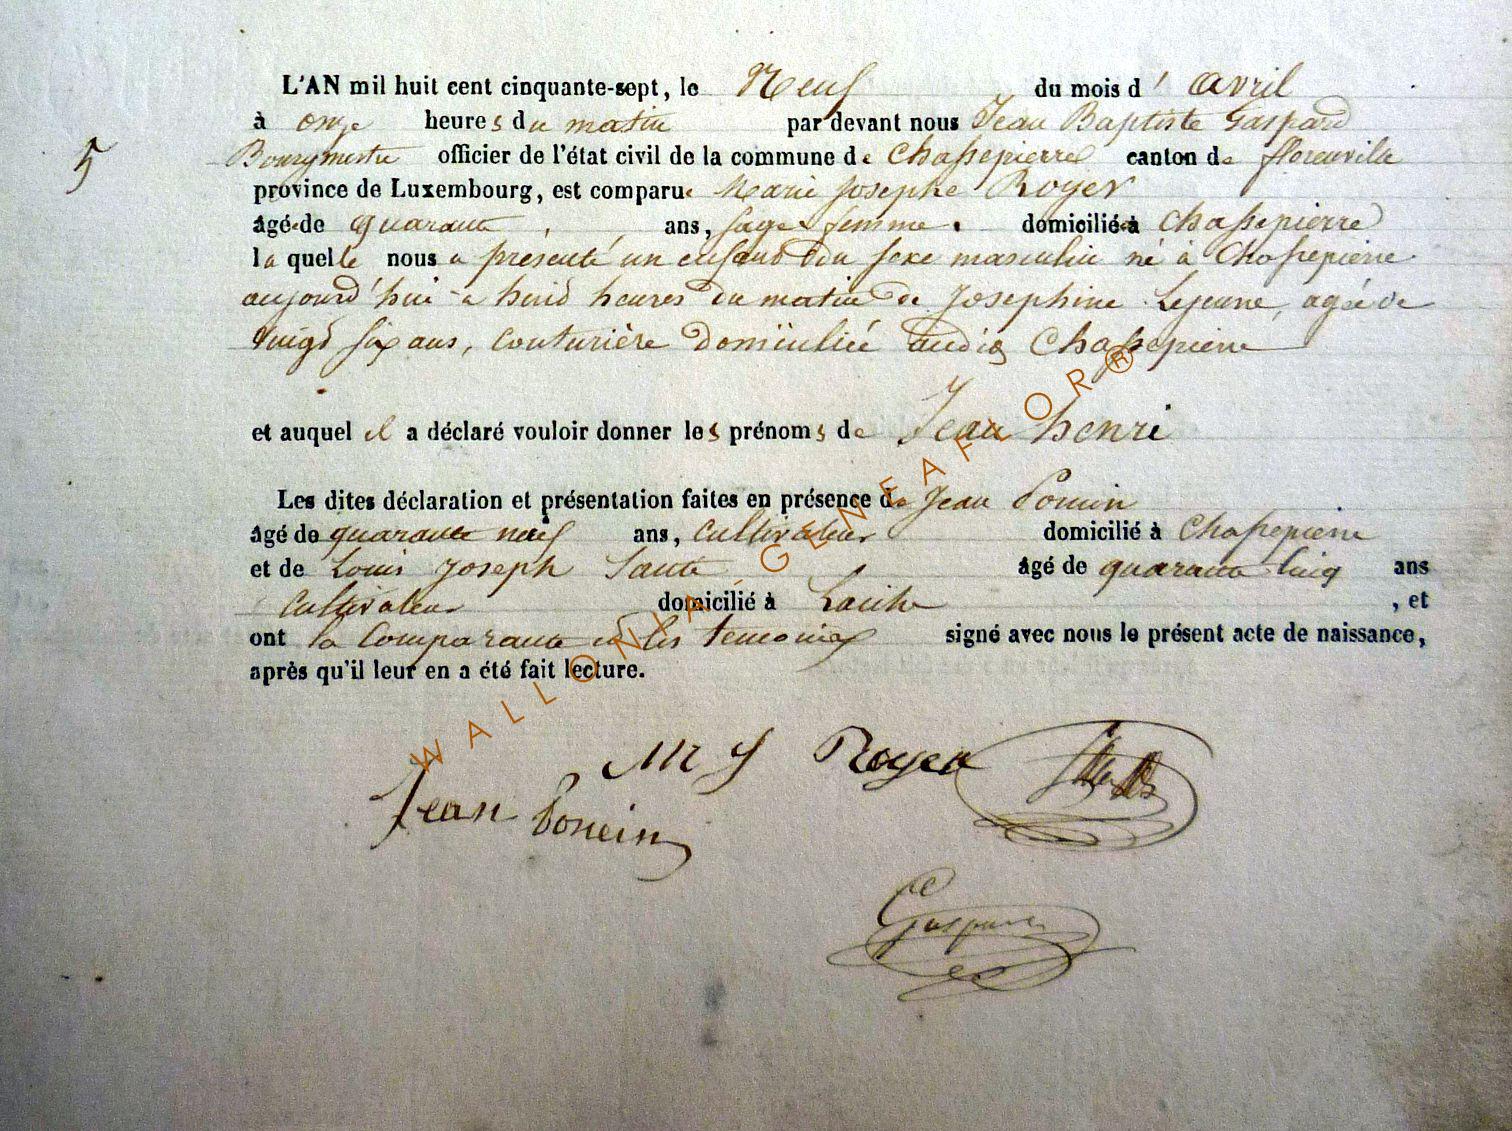 L'AN mil huit cent cinquante-sept, le Neuf du mois d' avril
à onze heures du matin par devant nous Jean Baptiste Gaspard
5
Bourgmestre officier de l'état civil de la commune de Chassepierre canton de florenville
province de Luxembourg, est comparue Marie Josephe Royer
âgé de quarante ans, sage femme domicilié à Chassepierre
laquelle nous a presenté un enfant du sexe masculin né à Chassepierre
aujourd'hui a huid heures du matin de Josephine Lejeune, agée de
vingt six ans, couturière domiciliée audis Chassepierre
et auquel il a déclaré vouloir donner les prénoms de Jean henri
Les dites déclaration et présentation faites en présence de Jean Poncin
âgé de quarante neuf ans, cultivateur domicilié à Chassepierre
et de Louis Joseph âgé de quarante cinq ans
cultivateur domicilié à Laiche , et
ont la Comparante et les temoins signé avec nous le présent acte de naissance,
après qu'il leur en a été fait lecture.
WALLONIA GENEAFLOR®
M J Royer
Jean Poncin
Gaspard